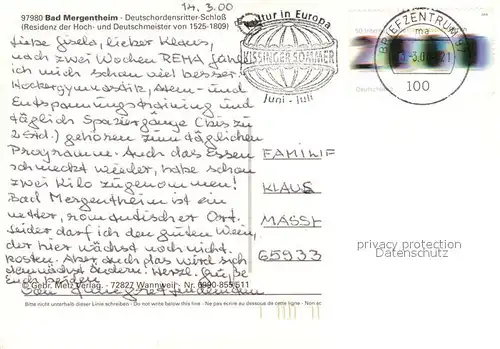 14.3.00
97980 Bad Mergentheim - Deutschordensritter-Schloß
(Residenz der Hoch- und Deutschmeister von 1525-1809)
Liebe Gisela, lieber Klaus,
nach zwei Wochen REHA fühl
ich mich schon viel besser.
Hockergymnastik, Atem- und
Entspannungstraining und
täglich Spaziergänge (bis zu
2 Std.) gehören zum täglichen
Programm. Auch das Essen
schmeckt wieder, habe schon
zwei Kilo zugenommen!
Bad Mergentheim ist ein
netter, romantischer Ort.
Leider darf ich den guten Wein,
der hier wächst noch nicht
kosten. Aber auch das wird sich
demnächst ändern. Herzl. Grüße
Euch beiden
von
© Gebr. Metz Verlag · 72827 Wannweil · Nr. 0990-855 511
Bitte nicht unterhalb dieser Linie schreiben - Do not write below this line - Ne pas écrire au dessous de cette ligne - Non
Kultur in Europa
KISSINGER SOMMER
Juni - Juli
BRIEFZENTRUM 97
ma
21
100
Deutschland
FAMILIE
KLAUS
MASSL
65933
privacy protection
Datenschutz